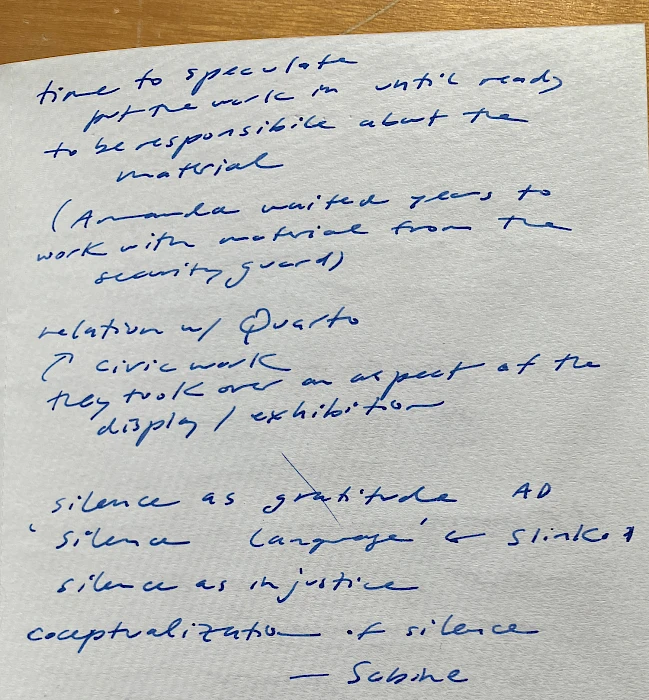 time to speculate
put the work in until ready
to be responsibile about the
material
(Amanda waited years to
work with material from the
security guard)
relation w/ Quarto
↑ civic work
they took over an aspect of the
display / exhibition
silence as gratitude AD
'silence language' ←
silence as injustice
coceptualization of silence
— Sabine